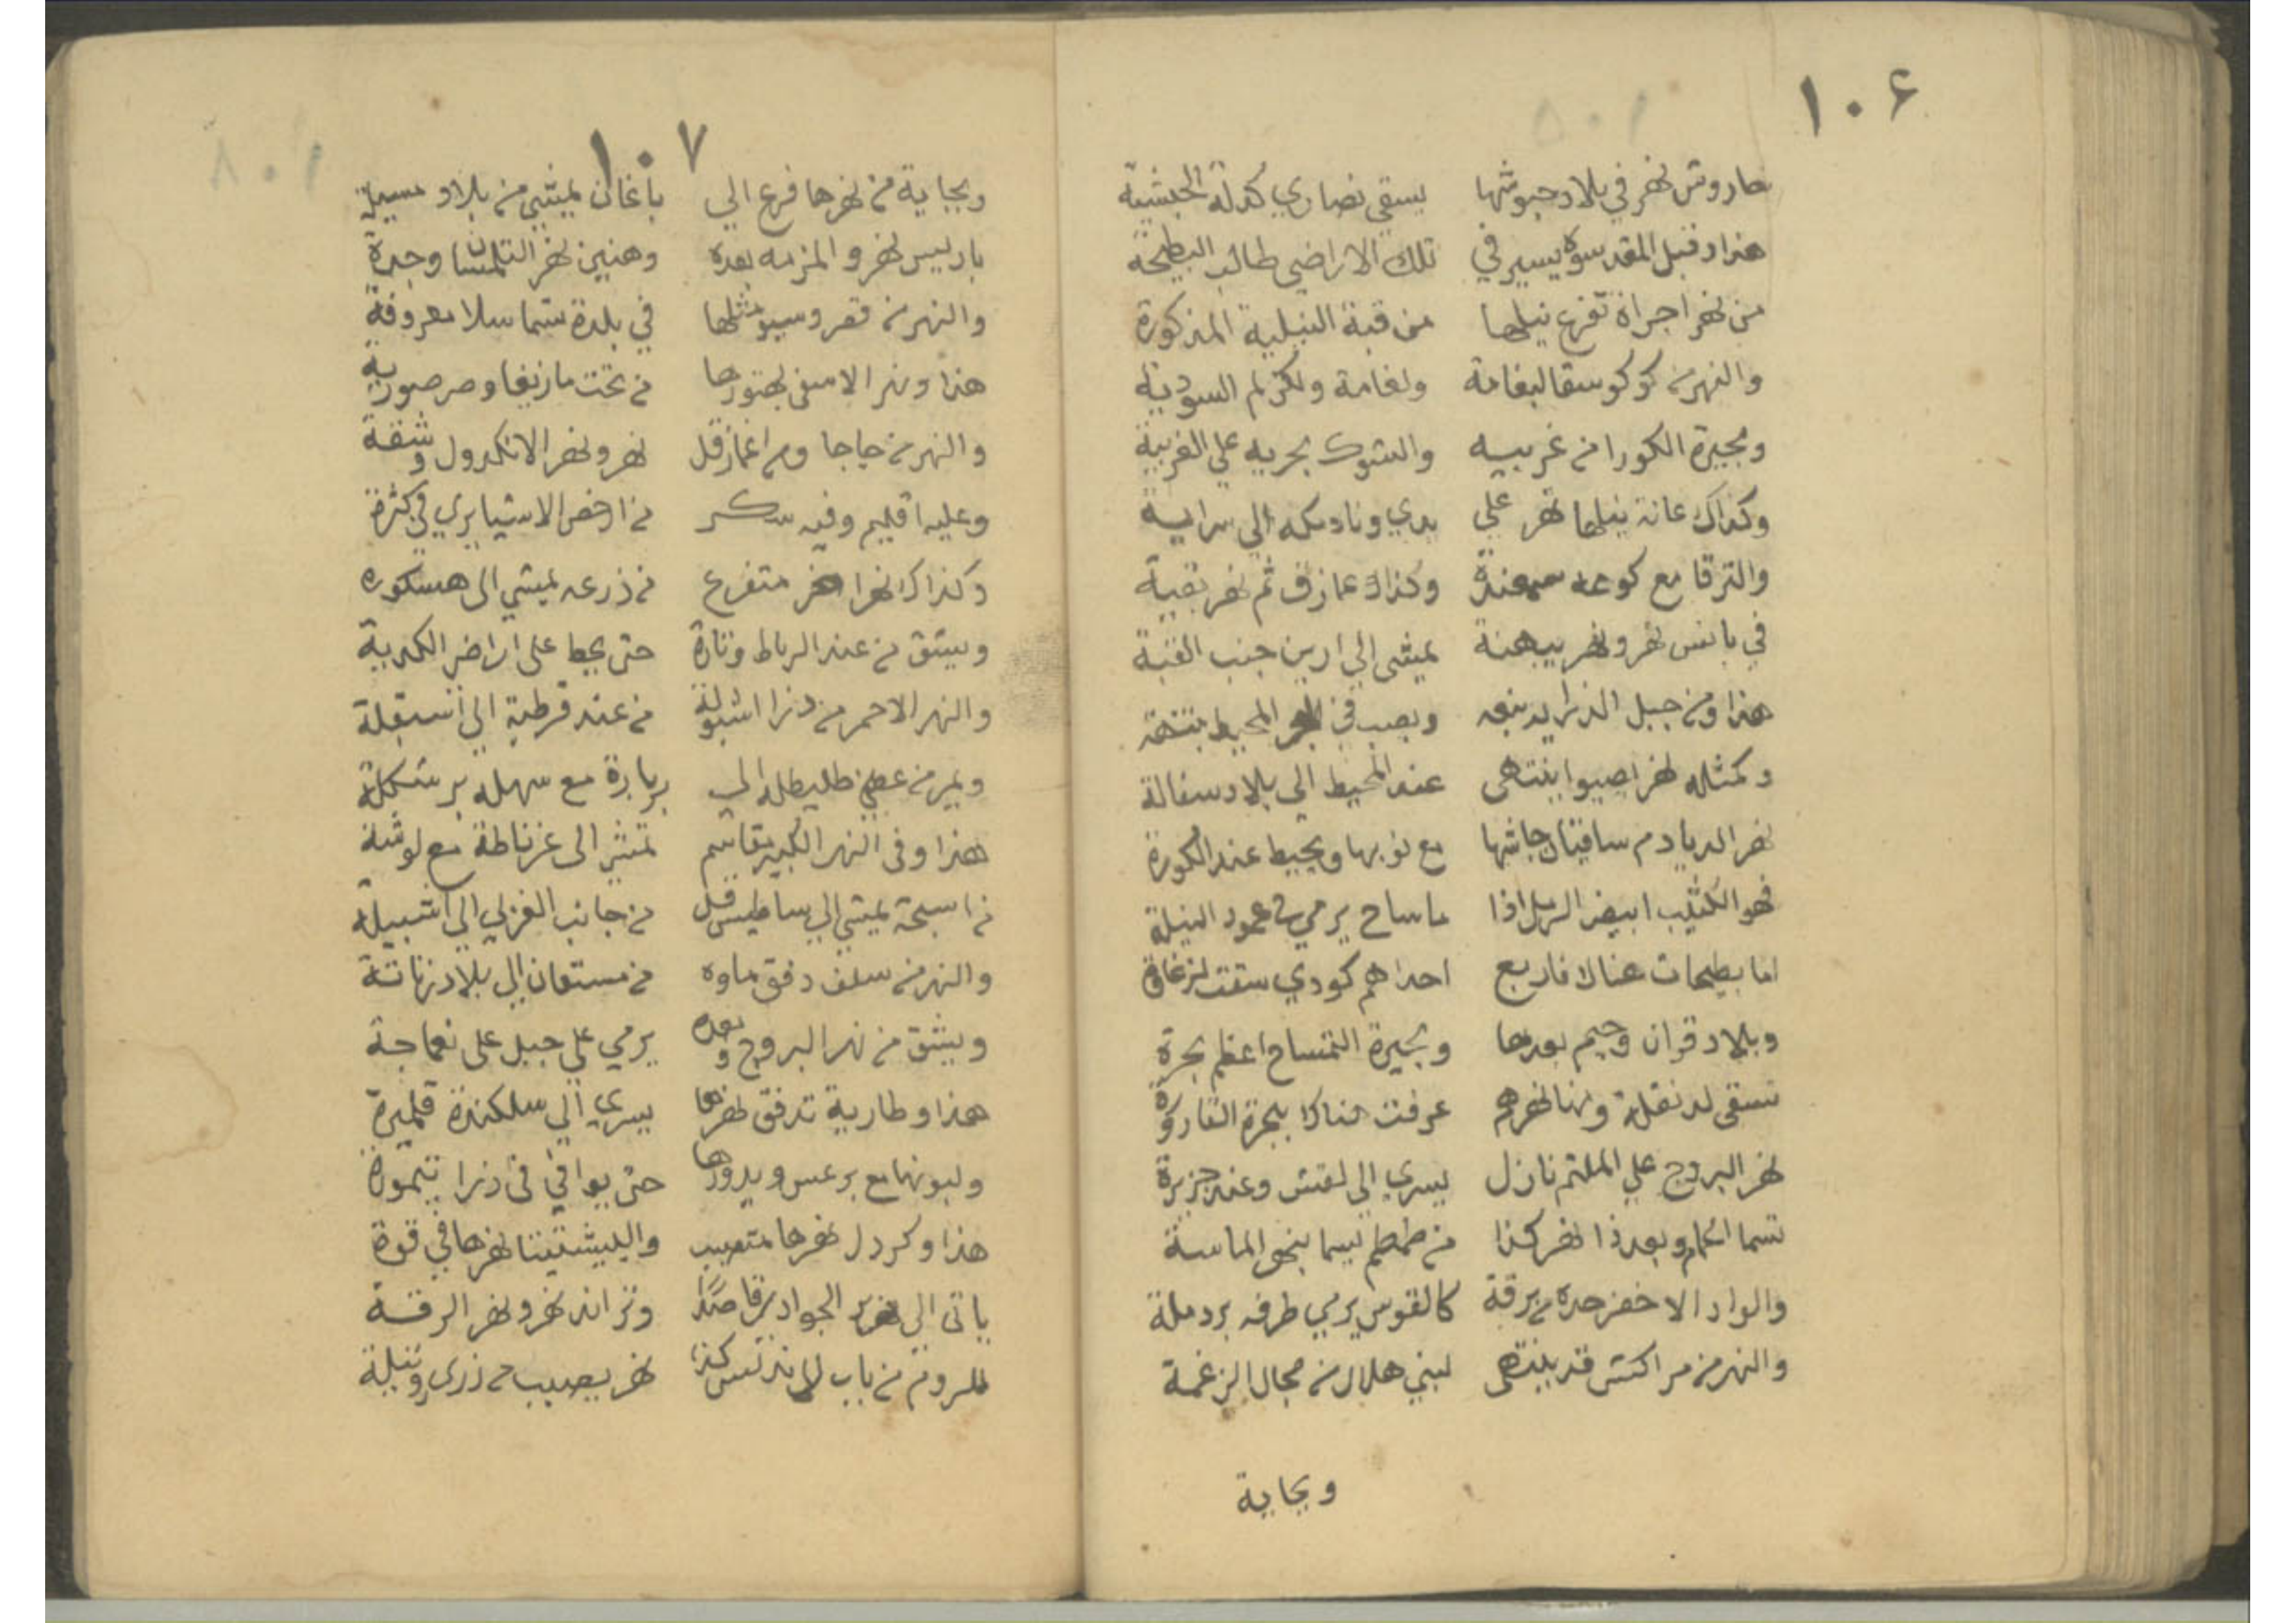 ١٠٦
هاروتس نهر في بلاد حبوشها يسقي نصاري كدلة الحبشية
هذا وقبل المقدسوه يسير في تلك الاراضي طالب البطيحة
من نهر اجراة تفرع نيلها من قبة النيلية المذكورة
والنهر من كوكو سقا لبغامة ولغامة ولكرلم السودية
وبحيرة الكورا من غربيه والشوك بحريه علي الغربية
وكذاك عانة نيلها نهر علي بدي ونادمكه الي سراية
والترقا مع كوعه وكذاك عازف ثم نهر بقبية
في بانس نهر ونهر بيهنة يمشي الي ارين جنب القبة
هذا ومن جبل الذرايد نبعه ويصب في البحر المحيط
وكمثله نهر اصيوا ينتهى عند المحيط الي بلاد سفالة
نهر الديادم سافتال جاشها مع نوبها ويحيط عند الكورة
فهو الكثيب ابيض الرمل اذا ما ساح يرمي في عمود النيلة
اما بطيحات هناك فاربع احداهم كودي سقت لزغاوة
وبلاد قران وجيم بعدها وبحيرة التمساح اعظم بحرة
تسقى لدنقلة ومنها نهرهم عرفت هناك بجرة التاركوة
نهر البروج علي الملثم نازل يسري الى لقتش وعند جزيرة
تسما اكام وبعد ذا نهر كذا من طمطم يسما بنهر الماسة
والواد الاخضر حده من برقة كالقوس يرمي طرفه بردملة
والنهر من مراكتش قد ينتهى لبني هلال من مجال الزغمة
وبجاية
١٠٧
وبجاية من نهرها فرع الي باغان يمشي من بلاد مسيلة
باديس نهر والمزمه بعده وهنين نهر التلمسان وجدة
والنهر من قعر وسيو مثلها في بلدة تسما سلا معروفة
هذا ونهر الاسفى بهتورها من تحت مازيغا وصرصورية
والنهر من حاجا وم اغماز قل نهر ونهر الانكدول وشقة
وعليه اقليم وفيه سكر من ارخص الاشيا يري في كثرة
وكذاك نهرا اخر متفرع من ذرعه يمشي الى هسكوره
ويشق من عند الرباط وتارة حتى يحط على اراضر الكدية
والنهر الاحمر من ذرا اشبولة من عند قرطبة الى اشبيلة
ويمر من عطي طليطله الي برباره مع سهله برشكلة
هذا وفى النهر الكبير تقاسم تمشي الى غرناطة مع لوشة
من اسبحة يمشي الي ساطيس قل من جانب الغربي الى اشبيلة
والنهر من سلف دفق ماوه من مستعان الي بلاد زناتة
ويشق من نهر البروج وبعده يرمي علي جبل على نعماجة
هذا وطارية تدفق نهرها يسري الي سلكندة قلميرة
ولبونها مع برعس ويدورها حتى يوافي فى ذرا يتمورة
هذا وكردل نهرها متعيب والبيشتينا نهرها في قوة
ياتى الي نهر الجواد برقاصدا وتزاند نهر ونهر الرقة
للروم من باب كذا نهر يصبب من ذرى ونيلة